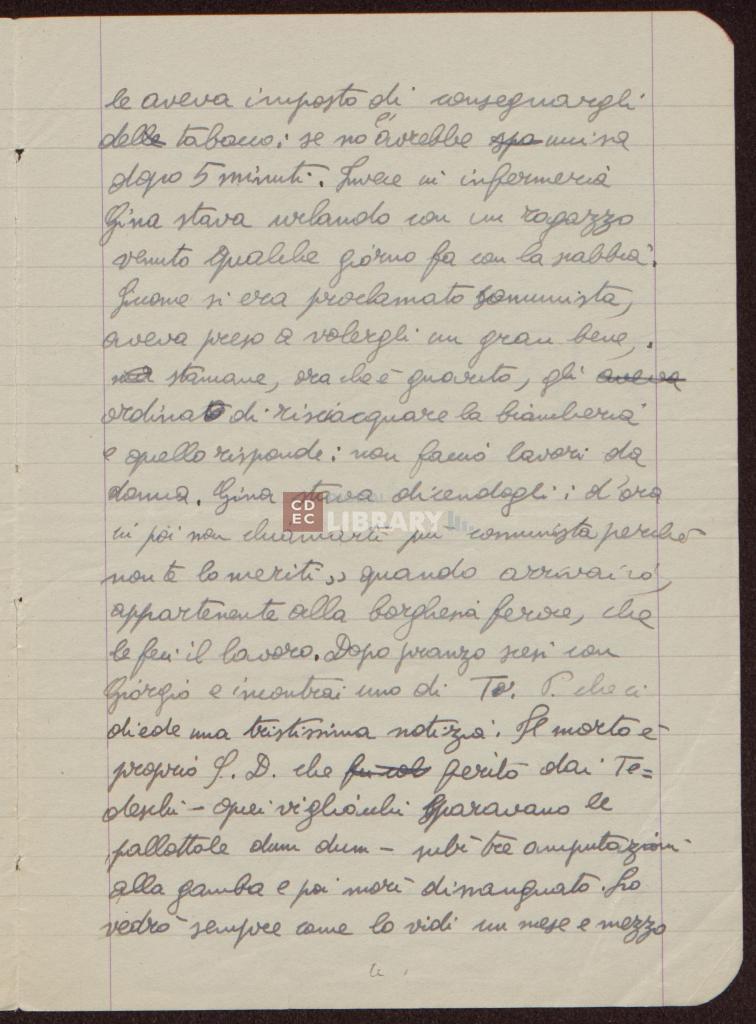 le aveva imposto di consegnargli
delle tabacco; se no ci avrebbe spa uccisa
dopo 5 minuti. Invece in infermeria
Gina stava urlando con un ragazzo
venuto qualche giorno fa con la scabbia.
Siccome si era proclamato comunista,
aveva preso a volergli un gran bene,.
ma stamane, ora che è guarito, gli aveva
ordinato di risciacquare la biancheria
e quello risponde: non faccio lavori da
donna. Gina stava dicendogli: d'ora
in poi non chiamarti più comunista perché
non te lo meriti,, quando arrivai io,
appartenente alla borghesia feroce, che
le feci il lavoro. Dopo pranzo scesi con
Giorgio e incontrai uno di P. che ci
diede una tristissima notizia. Il morto è
proprio D. che ferito dai Te=
deschi – quei vigliacchi sparavano le
pallottole dum dum – subì tre amputazioni
alla gamba e poi morì dissanguato. Lo
vedrò sempre come lo vidi un mese e mezzo
CD
EC LIBRARY